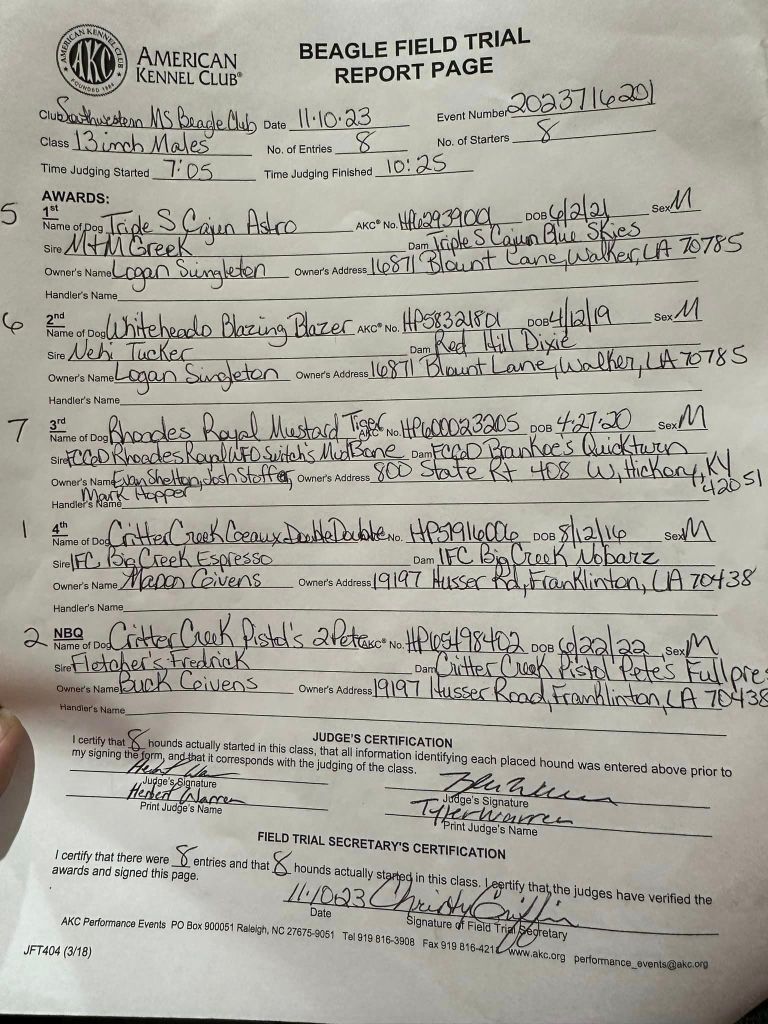 AMERICAN KENNEL CLUB
AKC
FOUNDED 1884
AMERICAN
KENNEL CLUB®
BEAGLE FIELD TRIAL
REPORT PAGE
Club Southwestern MS Beagle Club Date 11·10·23 Event Number 2023716201
Class 13 inch Males No. of Entries 8 No. of Starters 8
Time Judging Started 7:05 Time Judging Finished 10:25
AWARDS:
5 1st
Name of Dog Triple S Cajun Astro AKC® No. HP62939001 DOB 6/2/21 Sex M
Sire M+M Creek Dam Triple S Cajun Blue Skies
Owner's Name Logan Singleton Owner's Address 16871 Blount Lane, Walker, LA 70785
Handler's Name
6 2nd
Name of Dog Whiteheads Blazing Blazer AKC® No. HP58321801 DOB 4/12/19 Sex M
Sire Nehi Tucker Dam Red Hill Dixie
Owner's Name Logan Singleton Owner's Address 16871 Blount Lane, Walker, LA 70785
Handler's Name
7 3rd
Name of Dog Rhoades Royal Mustard Tiger AKC® No. HP600023205 DOB 4·27·20 Sex M
Sire FCGD Rhoades Royal WFO Switch's MudBone Dam FCGD Brankoe's Quickturn
Owner's Name Evan Shelton, Josh Stoffer, Owner's Address 800 State Rt 408 W, Hickory, KY
Handler's Name Mark Hopper 42051
1 4th
Name of Dog Critter Creek Coeaux Double Double No. HP51916006 DOB 8/12/16 Sex M
Sire IFC Big Creek Espresso Dam IFC Big Creek Nobarz
Owner's Name Mason Coivens Owner's Address 19197 Husser Rd, Franklinton, LA 70438
Handler's Name
2 NBQ
Name of Dog Critter Creek Pistol's 2Pete AKC® No. HP65498402 DOB 6/22/22 Sex M
Sire Fletcher's Fredrick Dam Critter Creek Pistol Pete's Full pres
Owner's Name Buck Coivens Owner's Address 19197 Husser Road, Franklinton, LA 70438
Handler's Name
JUDGE'S CERTIFICATION
I certify that 8 hounds actually started in this class, that all information identifying each placed hound was entered above prior to
my signing the form, and that it corresponds with the judging of the class.
Judge's Signature Judge's Signature
Herbert Warren Tyler Warren
Print Judge's Name Print Judge's Name
FIELD TRIAL SECRETARY'S CERTIFICATION
I certify that there were 8 entries and that 8 hounds actually started in this class. I certify that the judges have verified the
awards and signed this page.
11·10·23 Christy Griffin
Date Signature of Field Trial Secretary
AKC Performance Events PO Box 900051 Raleigh, NC 27675-9051 Tel 919 816-3908 Fax 919 816-421 www.akc.org performance_events@akc.org
JFT404 (3/18)